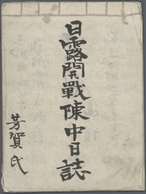 日露開戰陳中日誌
芳賀氏